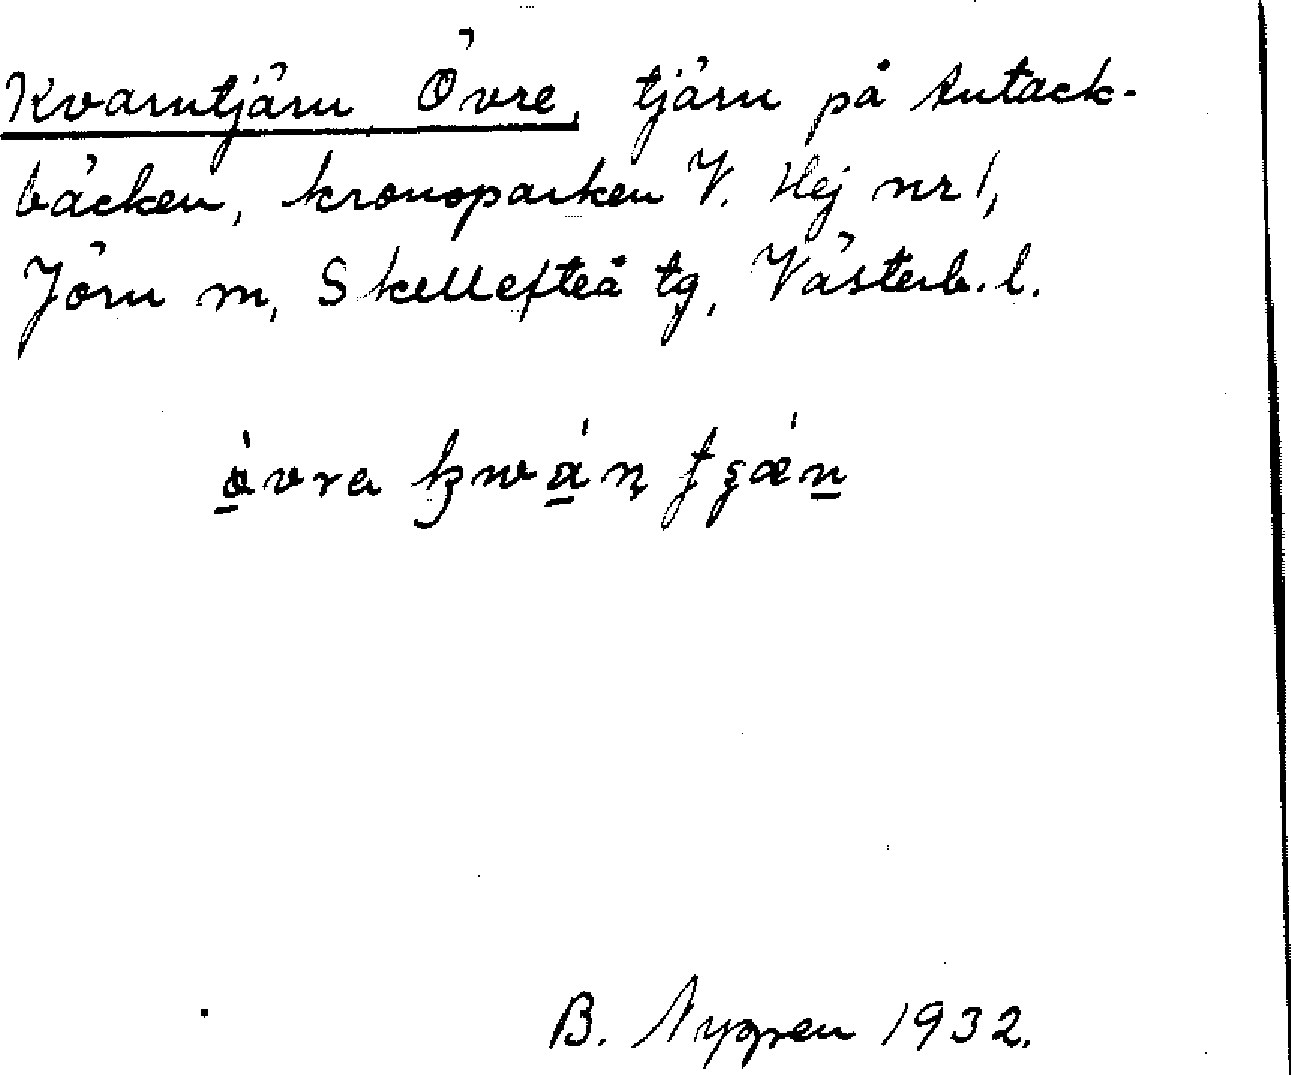 Kvarntjärn, Övre, tjärn på Antack-
bäcken, kronoparken V. Hej nr 1,
Jörn sn, Skellefteå tg, Västerb. l.
B. Nygren 1932.